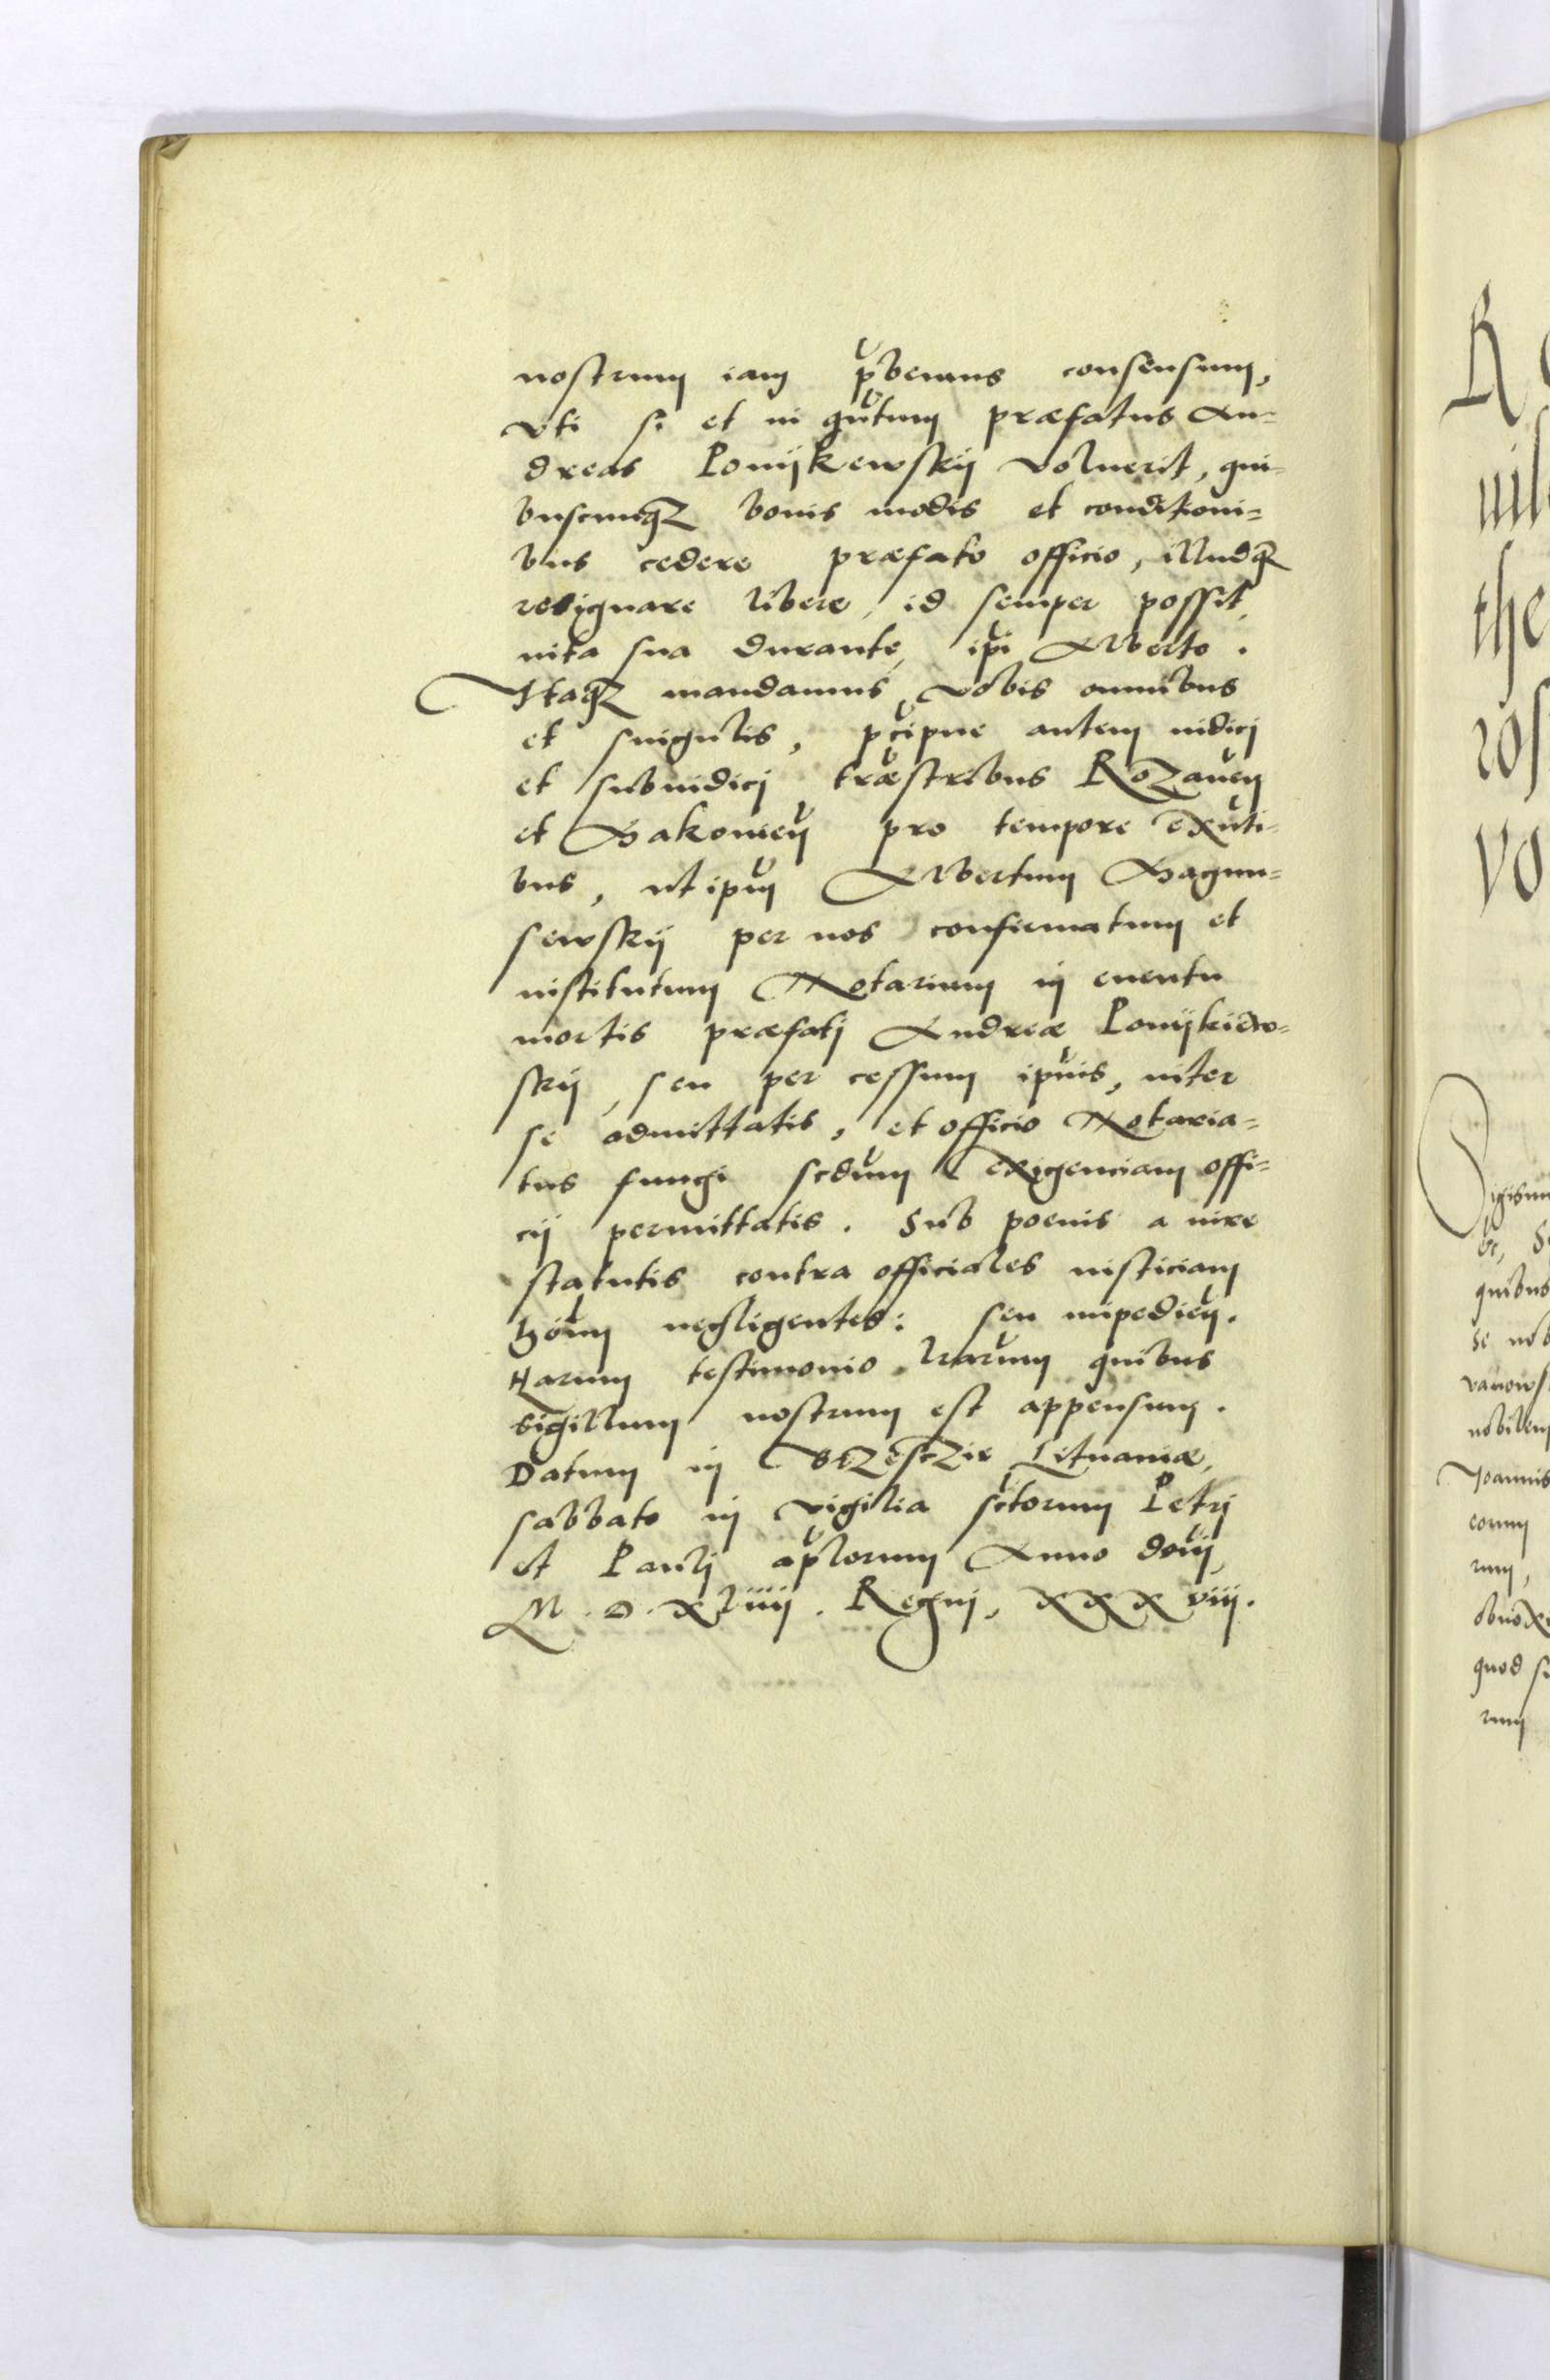 nostrum iam p̆bemus consensum,
vti si et in qŭtum præfatus An-
dreas Ponijkewskij voluerit, qui-
buscunqʒ bonis modis et conditioni-
bus cedere præfato officio, illudqʒ
resignare libere, id semper possit,
uita sua durante, ip̆i Alberto.
Itaqʒ mandamus, vobis omnibus
et singulis, pc̆ipue autem iudicj
et subiudicj tr̆æstribus Rozan̆en
et Makouien̆ pro tempore exn̆ti-
bus, ut ip̆um Albertum Magnu-
sewskij per nos confirmatum et
institutum Notarium in euentu
mortis præfatj Andreæ Ponijkiew-
skij, seu per cessum ip̆ius, inter
se admittatis, et officio Notaria-
tus fungi scd̆um exigenciam offi-
cij permittatis. Sub poenis a iure
statutis contra officiales iusticiam
hŏium negligentes: seu impedien̆.
Harum testimonio lr̆arum quibus
sigillum nostrum est appensum.
Datum in Brzesczie Lituaniæ,
sabbato in vigilia sc̆torum Petrj
et Paulj ap̆lorum Anno don̆i,
M.D.xliiij. Regnj, xxxviij.
R
nil
the
ros
vo
Sigismu
etc, S
quibus
se nob
vanows
nobilem
Joannis
eorum
rum,
obnoxi
quod si
rum